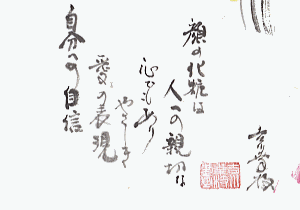 顔の化粧は
人への親切は
心でもあり
やさしさ
愛の表現
自分への自信